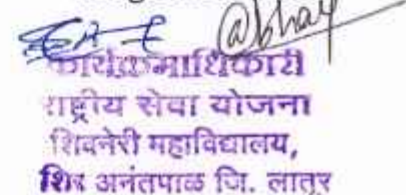 कार्यक्रमाधिकारी
राष्ट्रीय सेवा योजना
शिवनेरी महाविद्यालय,
शिरू अनंतपाळ जि. लातूर